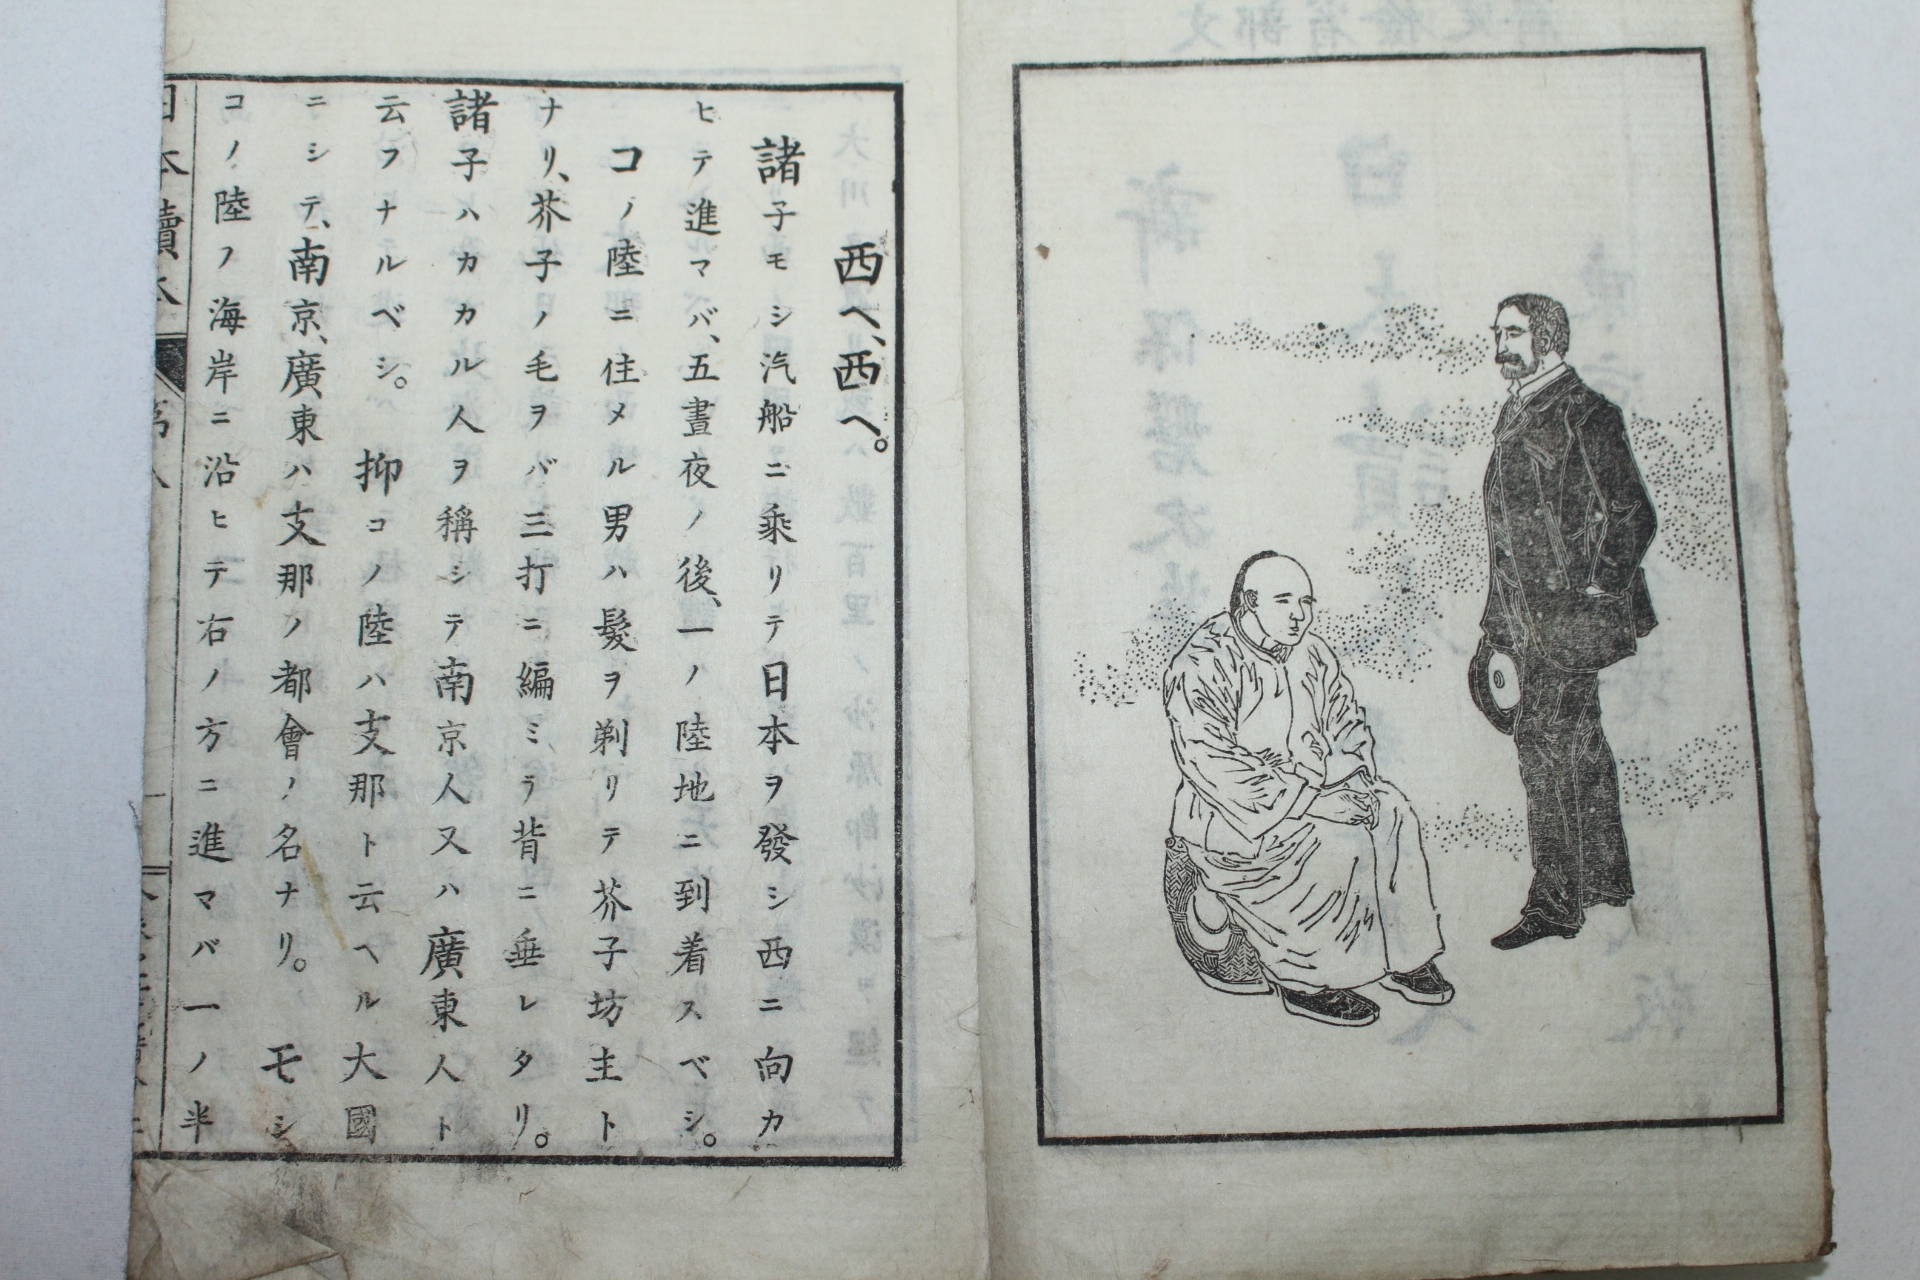 西へ、西へ。
諸子モシ汽船ニ乘リテ日本ヲ發シ西ニ向カ
ヒテ進マバ、五晝夜ノ後、一ノ陸地ニ到着スベシ。
コノ陸ニ住メル男ハ髮ヲ剃リテ芥子坊主ト
ナリ、芥子ノ毛ヲバ三打ニ編ミテ背ニ垂レタリ。
諸子ハカカル人ヲ稱シテ南京人又ハ廣東人ト
云フナルベシ。抑コノ陸ハ支那ト云ヘル大國
ニシテ、南京、廣東ハ支那ノ都會ノ名ナリ。モシ
コノ陸ノ海岸ニ沿ヒテ右ノ方ニ進マバ一ノ半
日本讀本 第八